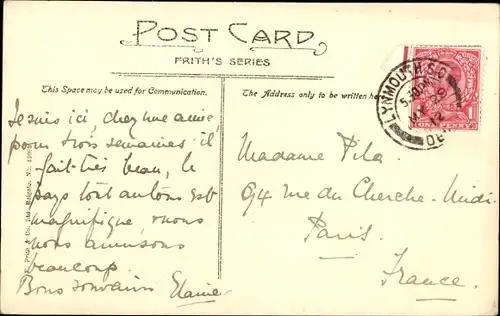 POST CARD
FRITH'S SERIES
This Space may be used for Communication.
The Address only to be written here
Je suis ici, chez une amie,
pour trois semaines il
fait très beau, le
pays tout autour est
magnifique, & nous
nous amusons
beaucoup.
Bons souvenirs Elaine
Madame Pila.
94 rue du Cherche-Midi
Paris.
France.
LYNMOUTH S.O
5.30PM
12
ONE PENNY